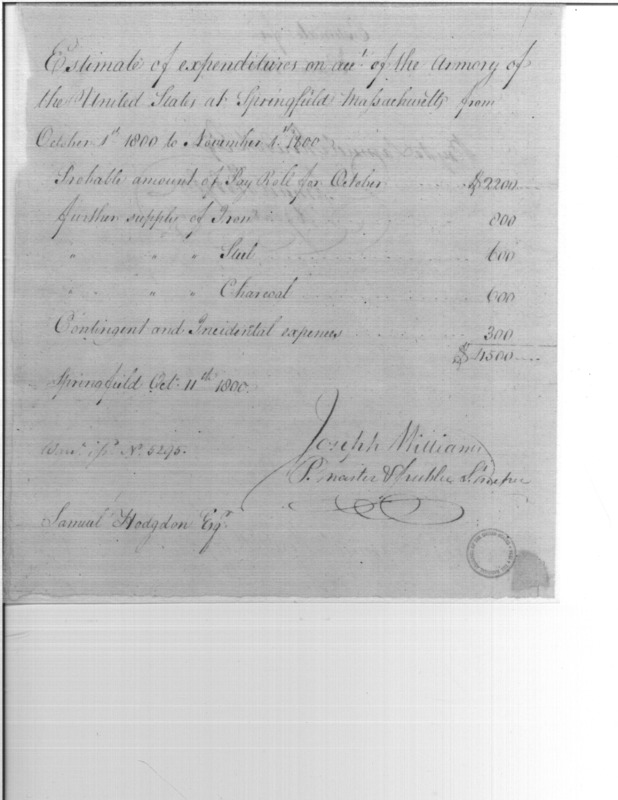 Estimate of expenditures on acct. of the Armory of
the United States at Springfield Massachusetts from
October 1st 1800 to November 1st 1800
Probable amount of Pay Roll for October $2200
further supply of Iron 800
" " " Steel 600
" " " Charcoal 600
Contingent and Incidental expences 300
$4500
Springfield Oct. 11th 1800.
No. 5295.
Joseph Williams
P. master & Storekeeper
Samuel Hodgdon Esqr.